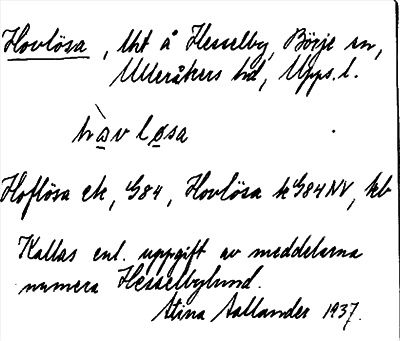 Hovlösa, lht å Hesselby, Börje sn,
Ulleråkers hd, Upps. l.
hàvlosa
Hoflösa ek, G84, Hovlösa k G84NV, kb
Kallas enl. uppgift av meddelarna
numera Hesselbylund.
Stina Aallander 1937.